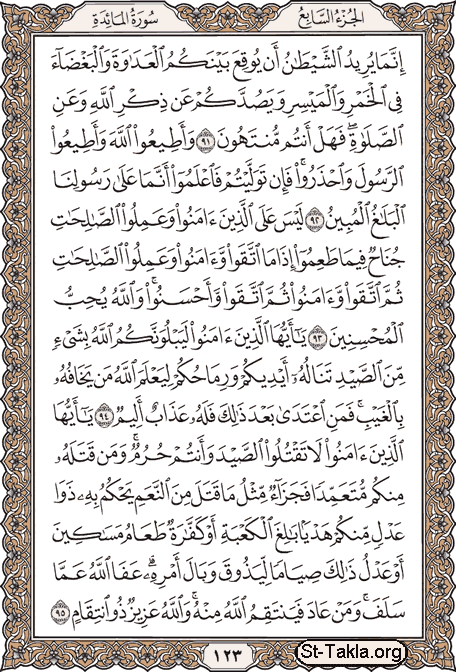 الجزء السابع
سورة المائدة
إِنَّمَا يُرِيدُ ٱلشَّيۡطَٰنُ أَن يُوقِعَ بَيۡنَكُمُ ٱلۡعَدَٰوَةَ وَٱلۡبَغۡضَآءَ
فِي ٱلۡخَمۡرِ وَٱلۡمَيۡسِرِ وَيَصُدَّكُمۡ عَن ذِكۡرِ ٱللَّهِ وَعَنِ
ٱلصَّلَوٰةِۖ فَهَلۡ أَنتُم مُّنتَهُونَ ٩١ وَأَطِيعُواْ ٱللَّهَ وَأَطِيعُواْ
ٱلرَّسُولَ وَٱحۡذَرُواْۚ فَإِن تَوَلَّيۡتُمۡ فَٱعۡلَمُوٓاْ أَنَّمَا عَلَىٰ رَسُولِنَا
ٱلۡبَلَٰغُ ٱلۡمُبِينُ ٩٢ لَيۡسَ عَلَى ٱلَّذِينَ ءَامَنُواْ وَعَمِلُواْ ٱلصَّٰلِحَٰتِ
جُنَاحٞ فِيمَا طَعِمُوٓاْ إِذَا مَا ٱتَّقَواْ وَّءَامَنُواْ وَعَمِلُواْ ٱلصَّٰلِحَٰتِ
ثُمَّ ٱتَّقَواْ وَّءَامَنُواْ ثُمَّ ٱتَّقَواْ وَّأَحۡسَنُواْۚ وَٱللَّهُ يُحِبُّ
ٱلۡمُحۡسِنِينَ ٩٣ يَٰٓأَيُّهَا ٱلَّذِينَ ءَامَنُواْ لَيَبۡلُوَنَّكُمُ ٱللَّهُ بِشَيۡءٖ
مِّنَ ٱلصَّيۡدِ تَنَالُهُۥٓ أَيۡدِيكُمۡ وَرِمَاحُكُمۡ لِيَعۡلَمَ ٱللَّهُ مَن يَخَافُهُۥ
بِٱلۡغَيۡبِۚ فَمَنِ ٱعۡتَدَىٰ بَعۡدَ ذَٰلِكَ فَلَهُۥ عَذَابٌ أَلِيمٞ ٩٤ يَٰٓأَيُّهَا
ٱلَّذِينَ ءَامَنُواْ لَا تَقۡتُلُواْ ٱلصَّيۡدَ وَأَنتُمۡ حُرُمٞۚ وَمَن قَتَلَهُۥ
مِنكُم مُّتَعَمِّدٗا فَجَزَآءٞ مِّثۡلُ مَا قَتَلَ مِنَ ٱلنَّعَمِ يَحۡكُمُ بِهِۦ ذَوَا
عَدۡلٖ مِّنكُمۡ هَدۡيَۢا بَٰلِغَ ٱلۡكَعۡبَةِ أَوۡ كَفَّٰرَةٞ طَعَامُ مَسَٰكِينَ
أَوۡ عَدۡلُ ذَٰلِكَ صِيَامٗا لِّيَذُوقَ وَبَالَ أَمۡرِهِۦۗ عَفَا ٱللَّهُ عَمَّا
سَلَفَۚ وَمَنۡ عَادَ فَيَنتَقِمُ ٱللَّهُ مِنۡهُۚ وَٱللَّهُ عَزِيزٞ ذُو ٱنتِقَامٍ ٩٥
١٢٣
St-Takla.org